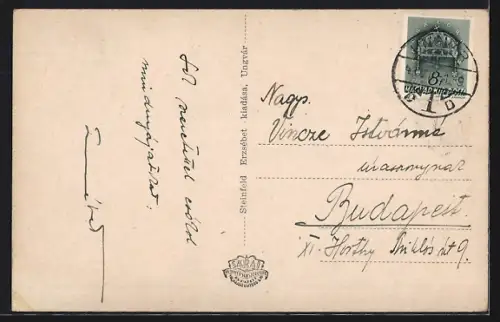 Sok szeretettel csókol
mindnyájatokat:
Steinfeld Erzsébet kiadása, Ungvár
Nagys.
Vincze Istvánné
úrasszonynak
Budapest.
XI. Horthy Miklós út 9.
8f
1 D